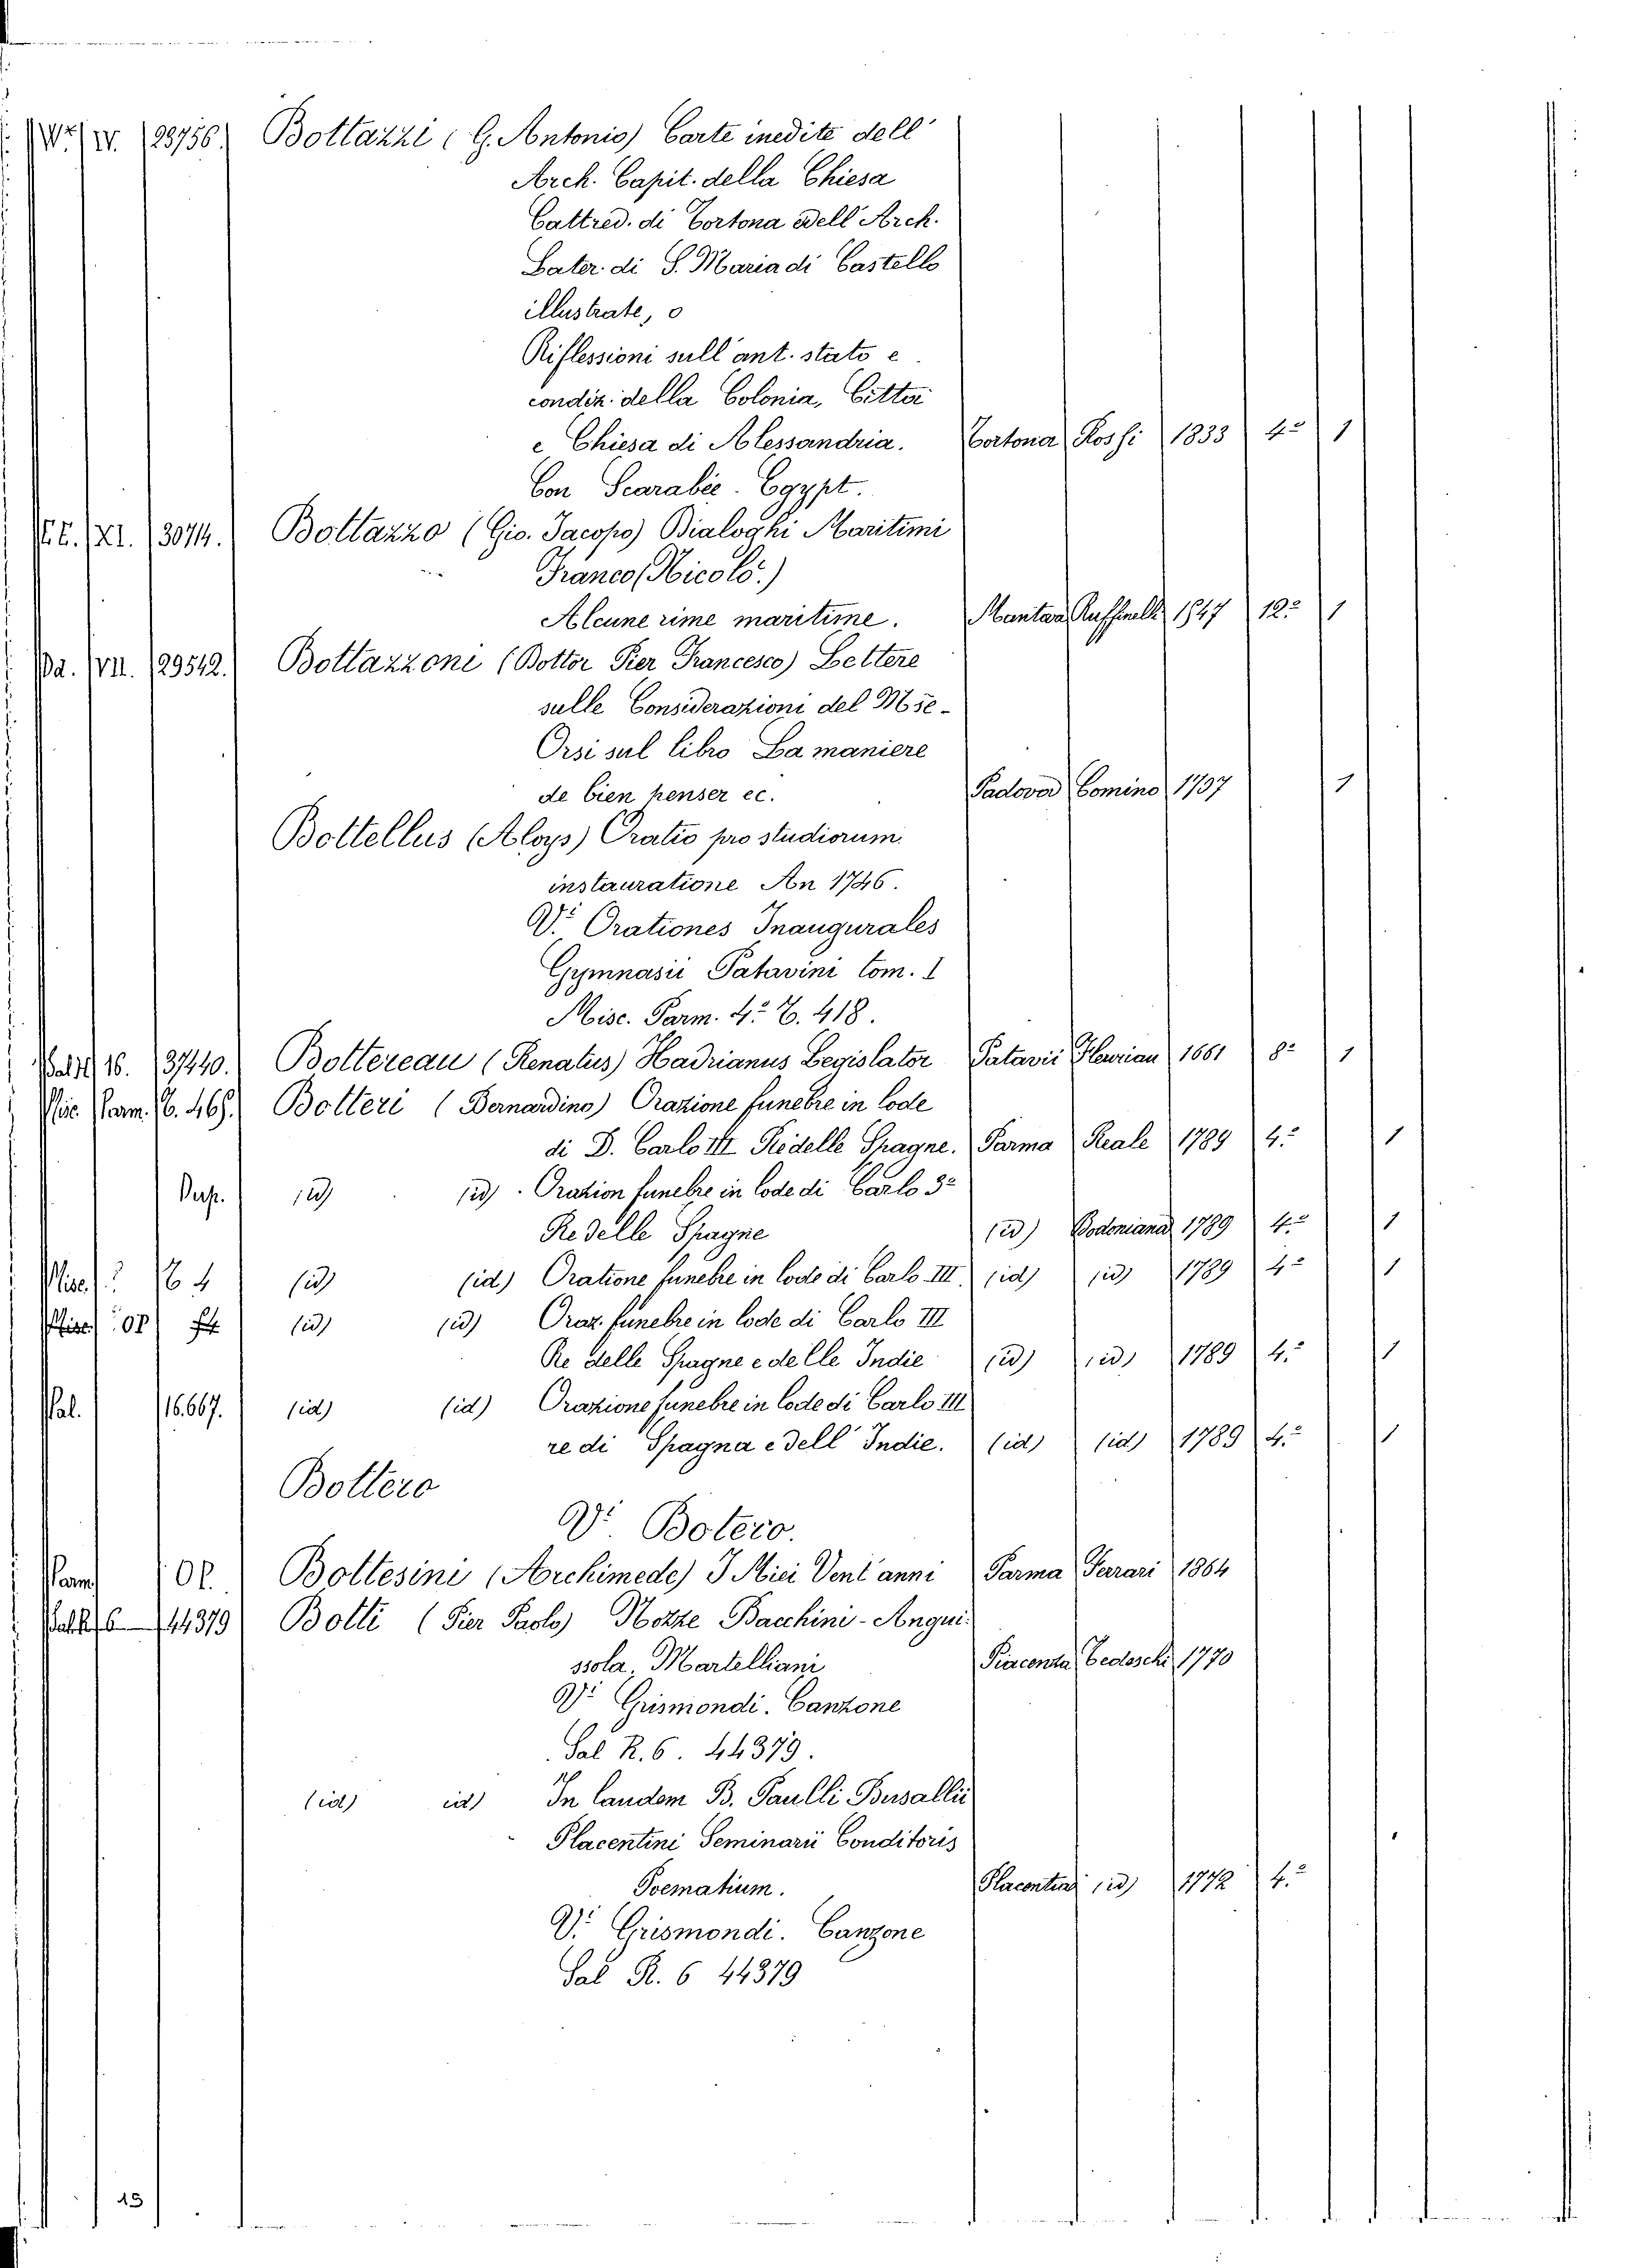 IV. 28756. Bottazzi (G. Antonio) Carte inedite dell'
Arch. Capit. della Chiesa
Cattred. di Tortona e dell' Arch.
Later. di S. Maria di Castello
illustrate, o
Riflessioni sull' ant. stato e
condiz. della Colonia, Città
e Chiesa di Alessandria. Tortona Rossi 1833 4º 1
Con Scarabèe. Egypt.
XI. 30714. Bottazzo (Gio. Jacopo) Dialoghi Maritimi
Franco (Nicolò.)
Alcune rime maritime. Mantova Ruffinelli 1547 12º 1
Pa. VII. 29542. Bottazzoni (Dottor Pier Francesco) Lettere
sulle Considerazioni del Mse.
Orsi sul libro La maniere
de bien penser ec. Padova Comino 1707 1
Bottellus (Aloys) Oratio pro studiorum
instauratione An 1746.
Vi Orationes Inaugurales
Gymnasii Patavini tom. I
Misc. Parm. 4º T. 418.
16. 37440. Bottereau (Renatus) Hadrianus Legislator Patavii 1661 8º 1
Mis. Parm. T. 46. Botteri (Bernardino) Orazione funebre in lode
di D. Carlo III Re delle Spagne. Parma Reale 1789 4º 1
Dup. (id) (id) Orazion funebre in lode di Carlo 3º
Re delle Spagne (id) Bodoniana 1789 4º 1
Misc. T. 4 (id) (id) Oratione funebre in lode di Carlo III (id) (id) 1789 4º 1
Misc. Of (id) (id) Oraz. funebre in lode di Carlo III
Re delle Spagne e delle Indie (id) (id) 1789 4º 1
Pal. 16.667. (id) (id) Orazione funebre in lode di Carlo III
re di Spagna e dell' Indie. (id) (id) 1789 4º 1
Bottero
Vi Botero.
Parm. Of. Bottesini (Archimede) I Miei Vent'anni Parma Ferrari 1864
Pal. R. 6 44379 Botti (Pier Paolo) Nozze Bacchini-Angui-
ssola, Martelliani Piacenza Tedeschi 1770
Vi Grismondi. Canzone
Pal R. 6. 44379.
(id) (id) In laudem B. Paulli Busallii
Placentini Seminarii Conditoris
Poematium. Placentiae (id) 1772 4º
Vi Grismondi. Canzone
Pal R. 6 44379